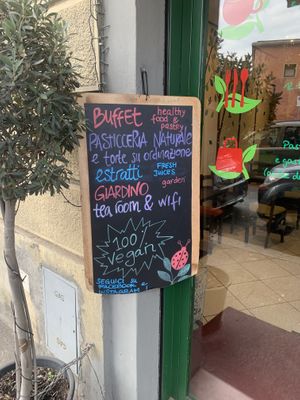 BUFFET healthy
food &
pastry
PASTICCERIA NATURALE
e torte su ordinazione
estratti FRESH
JUICES
GIARDINO garden
tea room & wifi
100%
vegan
SEGUICI SU
FACEBOOK e
INSTAGRAM
GAS
Pas
e ga